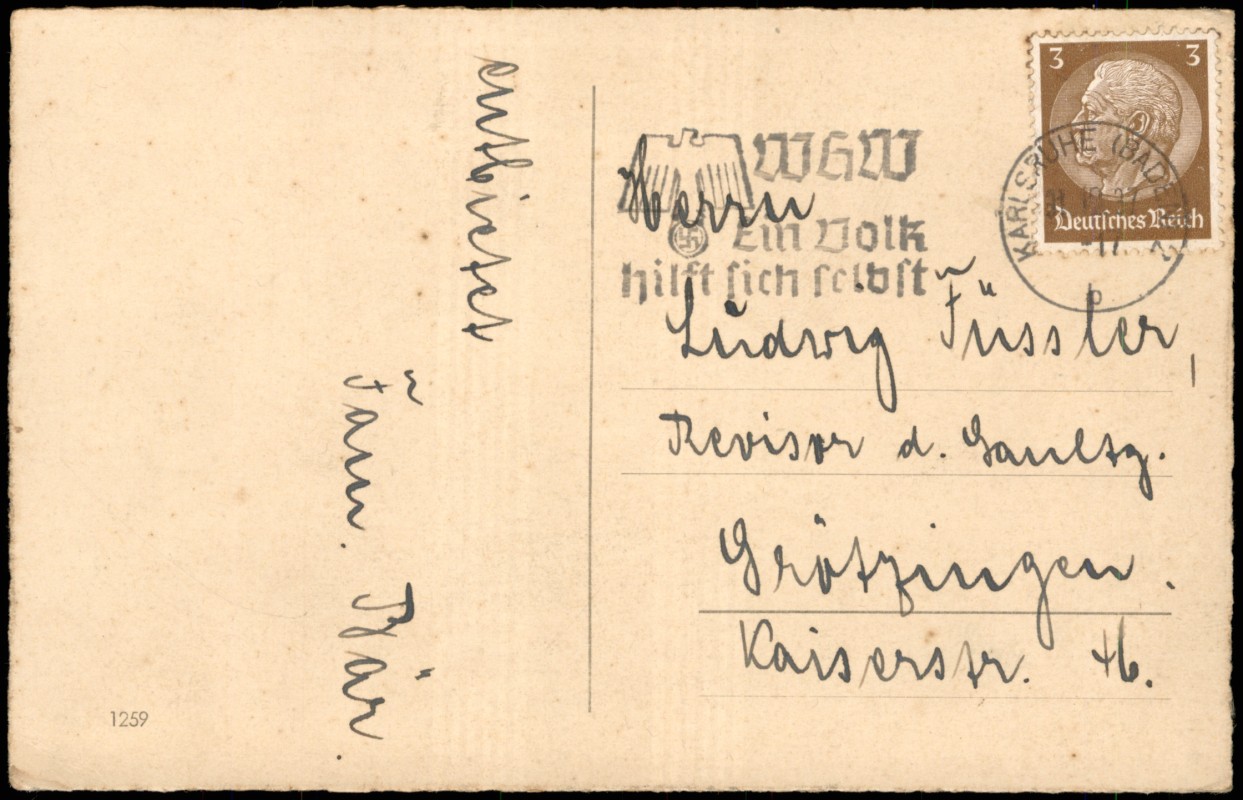 entbietet
Fam. Bär.
1259
3 3
Deutsches Reich
KARLSRUHE (BADEN)
WHW
Ein Volk
hilft sich selbst
Herrn
Ludwig Füssler,
Revisor d.
Grötzingen.
Kaiserstr.